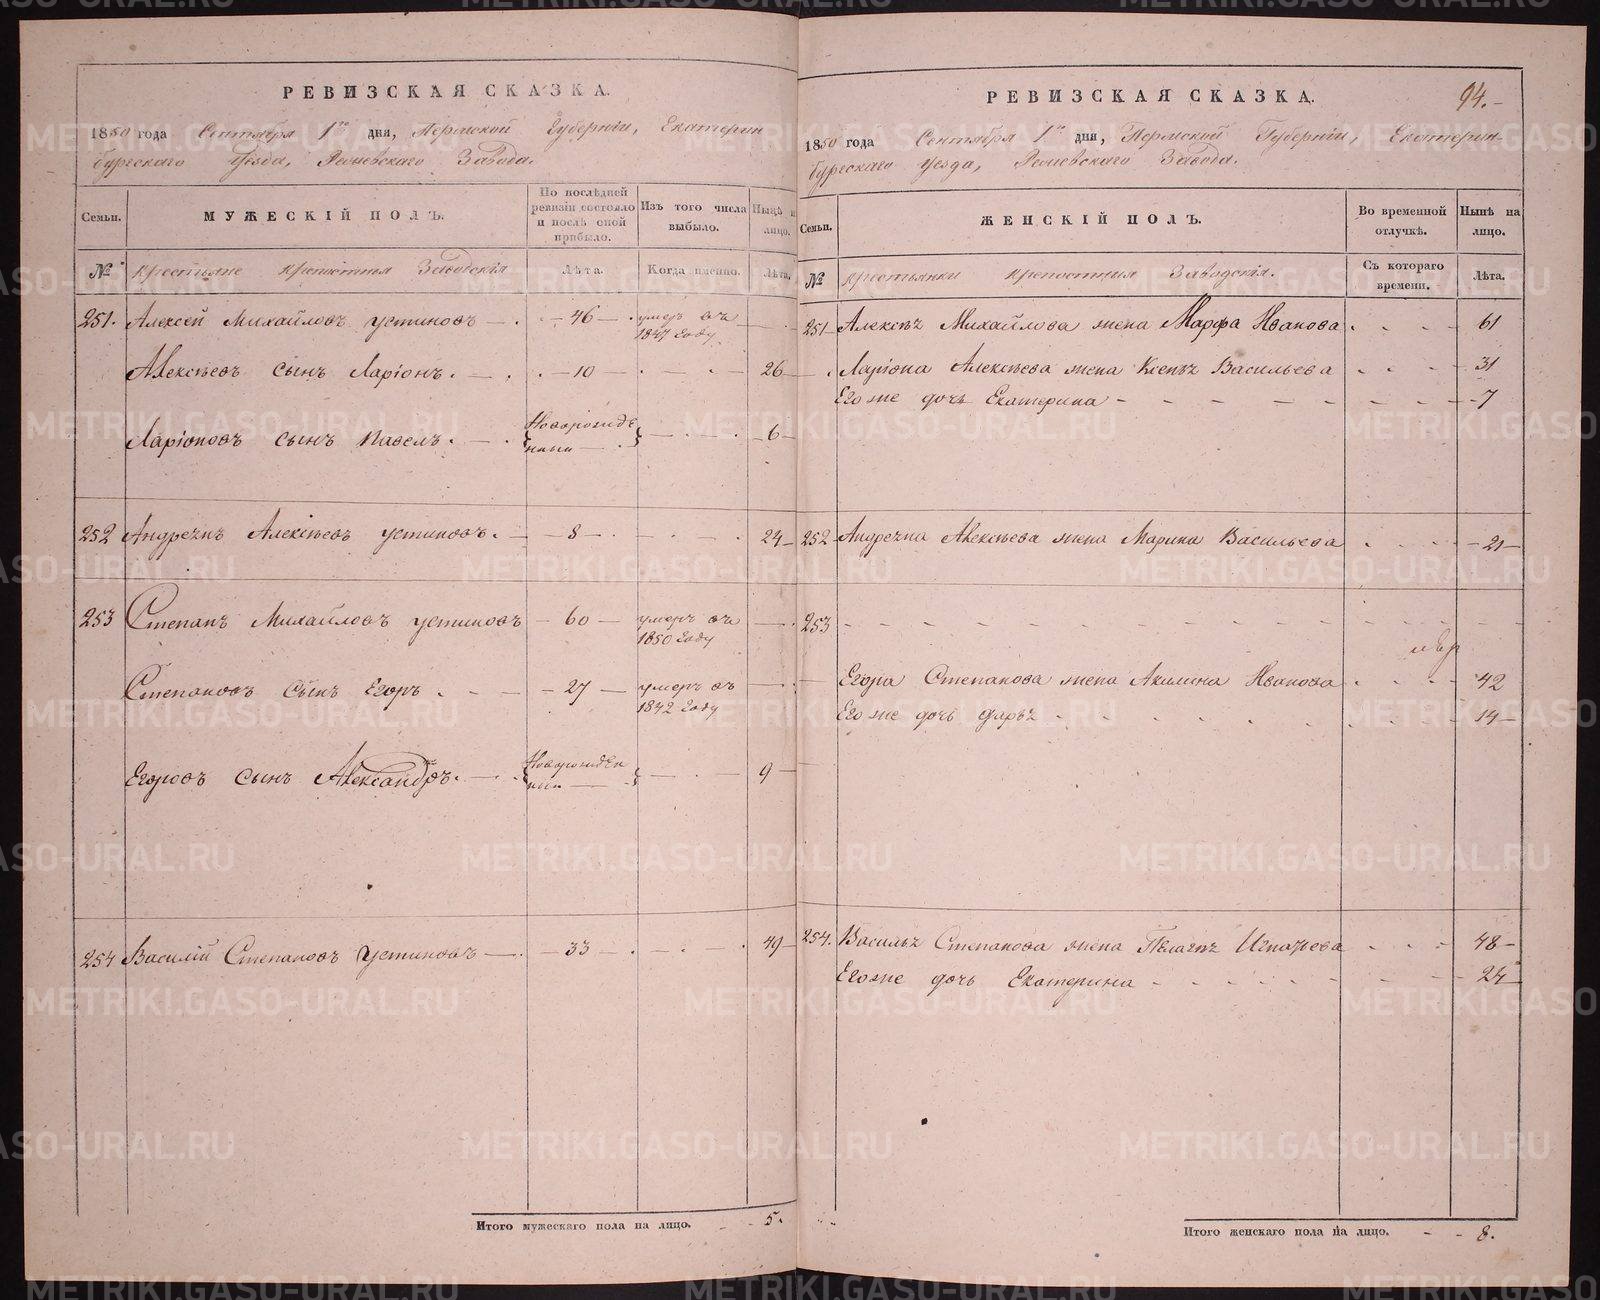 РЕВИЗСКАЯ СКАЗКА.
1850 года Сентября 1го дня, Пермской Губерніи, Екатерин
бургскаго уезда, Режевскаго Завода.
Семьи.
МУЖЕСКІЙ ПОЛЪ.
По послѣдней ревизіи состояло и послѣ оной прибыло.
Изъ того числа выбыло.
Нынѣ на лицо.
№
Крестьяне крепостныя Заводскія
Лѣта.
Когда именно.
Лѣта.
251. Алексей Михайловъ Устиновъ — 46 — умеръ въ
1847 Году
Алексѣевъ сынъ Ларіонъ. — 10 — 26
Ларіоновъ сынъ Павелъ. Новорожде
нный — 6
252 Андреянъ Алексѣевъ Устиновъ. — 8 — 24
253 Степанъ Михайловъ Устиновъ — 60 — умеръ въ
1850 Году
Степановъ Сынъ Егоръ. — 27 — умеръ въ
1842 Году
Егоровъ сынъ Александръ. Новорожден
ный — 9
254 Василій Степановъ Устиновъ — 33 — 49
Итого мужескаго пола на лицо. 5.
94.
РЕВИЗСКАЯ СКАЗКА.
1850 года Сентября 1го дня, Пермской Губерніи, Екатерин-
бургскаго уезда, Режевскаго Завода.
Семьи.
ЖЕНСКІЙ ПОЛЪ.
Во временной отлучкѣ.
Нынѣ на лицо.
№
Крестьянки крепостныя Заводскія.
Съ котораго времени.
Лѣта.
251 Алексѣя Михайлова жена Марфа Иванова 61
Ларіона Алексѣева жена Ксенья Васильева 31
Его же дочь Екатерина 7
252 Андреяна Алексѣева жена Марина Васильева 21
253
Егора Степанова жена Акилина Иванова 42
Его же дочь Дарья 14
254. Василья Степанова жена Пелагея Игнатьева 48
Его же дочь Екатерина 24
Итого женскаго пола на лицо. 8.
METRIKI.GASO-URAL.RU